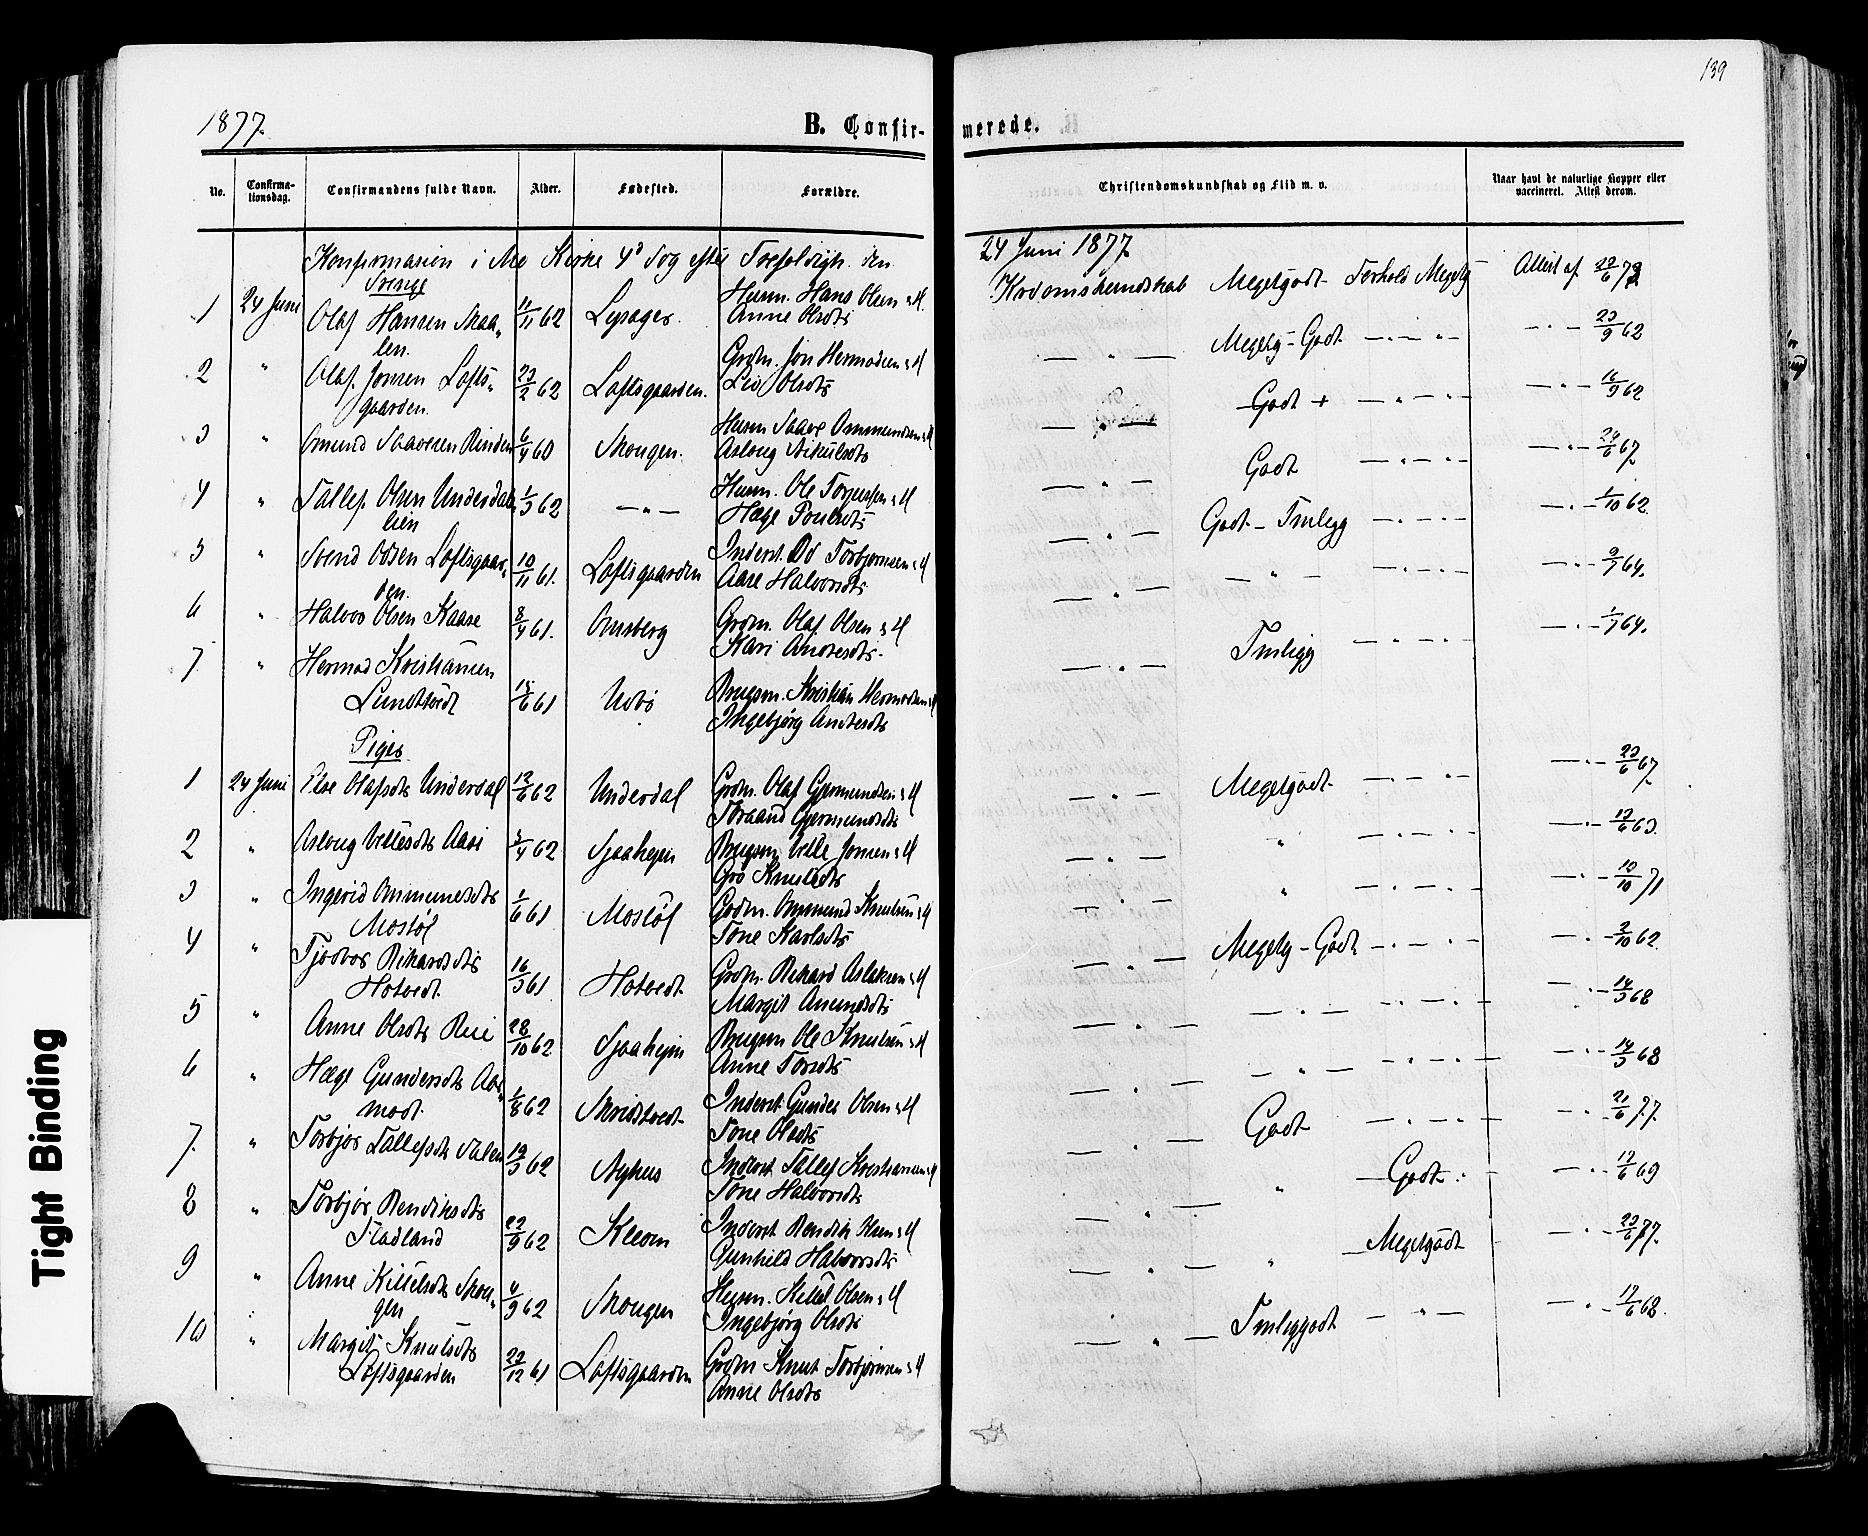 139
1877.
B. Confir-
merede.
No.
Confirma-
tionsdag.
Confirmandens fulde Navn.
Alder.
Fødested.
Forældre.
Christendomskundskab og Flid m. v.
Naar havt de naturlige Kopper eller
vaccineret. Attest derom.
Konfirmasion i Kirke 4d Sdg efter Trefoldigh. den
24 Juni 1877
Drenge
1 24 Juni Olaf Hansen Skaa- 11/11 62 Lysager. Husm. Hans Olsen & H.
len. Anne Olsdts
Meget godt Forhold Megetg Attest af 22/6 72
2 " Olaf Jonsen Lofts- 23/2 62 Loftsgaarden. Grdm. Jon Hermodsen & H
gaarden. Liv Olsdts
— " — Megetg-Godt — " — 23/9 62
3 " Omund Saavesen Rinden 6/4 60 Skougen. Husm Saave Ommundsen & H
Asloug
— " — Godt + — " — 16/9 62
4 " Tallef Olsen Underdals- 1/3 62 — " — Husm. Ole Torjussen & H
lien Hæge Poulsdts
— " — Godt — " — 24/6 67
5 " Svend Odsen Loftsgaar- 10/11 61. Loftsgaarden Inderst. Od Torbjørnsen & H
den. Aase Halvorsdts
— " — Godt - Tmlegg — " — 1/10 62
6 " Halvor Olsen Kaase 8/4 61. Omsberg Grdm. Olaf Olsen & H
Kari Andersdts
— " — — " — — " — 9/7 64.
7 " Hermod Kristiansen
Lundtvedt 15/6 61 Udbø Brugsm. Kristian Hermodsen & H
Ingebjørg Andersdts
— " — Tmligg — " — 1/7 64.
Piger
1 24 Juni Else Olafsdts Underdal 12/6 62 Underdal Grdm. Olaf Gjermundsen & H
Toraand Gjermundsdts
— " — Megetgodt — " — 23/6 67
2 " Aslaug Vetlesdts Aasi 3/4 62 Sjaahejen Brugsm Vetle Jonsen & H
Gro Knutsdts
— " — " — " — 12/6 63.
3 " Ingerid Ommundsdts
Mostøl 1/6 61 Mostøl Grdm. Ommund Knutsen & H
Tone Karlsdts
— " — " — " — 10/10 71
4 " Tjodbor Rikardsdts
Hotvedt 16/3 61 Hotvedt Grdm. Rikard Aslaksen & H
Margit Amundsdts
— " — Megetg-Godt — " — 2/10 62
5 " Anne Olsdts Rui 28/10 62 Sjaahejen Brugsm Ole Knutsen & H
Anne Torsdts
— " — — " — — " — 14/3 68
6 " Hæge Gundersdts Aas-
modt. 1/8 62 Skridstvedt Inderst Gunder Olsen & H
Tone Olsdts
— " — — " — — " — 14/3 68
7. " Torbjør Tallefsdts Dalen 19/3 62 Nyhus Inderst Tallef Kristiansen & H
Tone Halvorsdts
— " — Godt — " — 21/6 77.
8 " Torbjør Bendiksdts
Fladland 22/9 62 Kleom Inderst Bendik & H
Gunhild Halvorsdts
— " — " — Godt — 12/6 69
9 " Anne Kittelsdts Skou- 4/9 62 Skougen Husm. Kittel Olsen & H
gen Ingebjørg Olsdts
— " — " — Megetgodt — 23/6 77.
10 " Margit Knutsdts
Loftsgaarden 22/12 61 Loftsgaarden Grdm Knut Torbjørnsen & H
Anne Olsdts
— " — Tmleggodt — " — 17/6 68.
Tight Binding